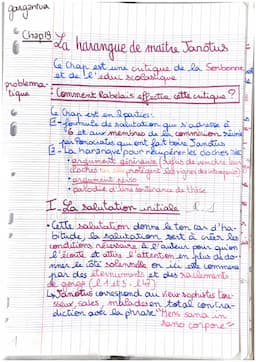 gargantua
Chap 19
La harangue de maître Janotus
Ce Chap est une critique de la Sorbonne
et de l'educ scolastique
problématique
Comment Rabelais effectue cette critique ?
Ce Chap est en 2 parties:
1 - formule de salutation qui s'adresse à
G et aux membres de la commission
par Ponocrates qui ont fait boire Janotus
2 - La harangue pour récupérer les cloches
• argument généreux (refus de vendre leurs
cloches protègent les vignes des intempéries)
• argument
• parodie d'une soutenance de thèse
I - La salutation initiale l.1
• Cette salutation donne le ton car d'ha-
bitude, la salutation sert à créer les
conditions nécessaire à l'auteur pour qu'on
l'écoute et attire l'attention en plus de do-
nner le côté solennelle or ici elle commence
par des éternuements et des raclements
de gorge (l 1 et 3. l4)
↳ Janotus correspond au vieux sophiste tou-
sseux, sales, malades en total contra-
diction avec la phrase "Mens sana in
sano corpore"